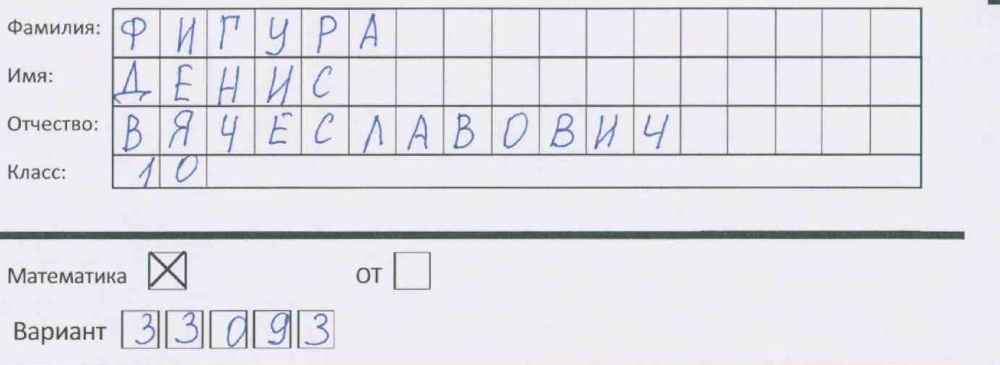 Фамилия: ФИГУРА
Имя: ДЕНИС
Отчество: ВЯЧЕСЛАВОВИЧ
Класс: 10
Математика ☒ ОТ ☐
Вариант 33093